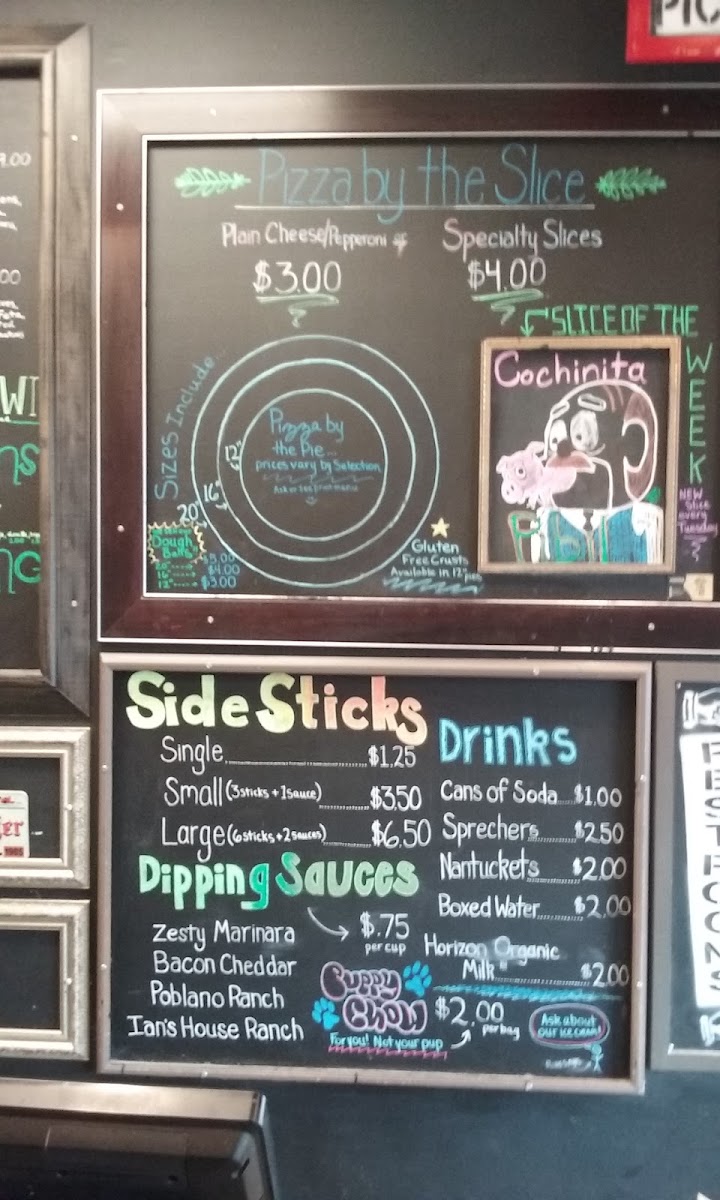 PIC
9.00
00
WI
ns
ng
er
Pizza by the Slice
Plain Cheese/Pepperoni or
$3.00
Specialty Slices
$4.00
SLICE OF THE
WEEK
Cochinita
NEW
Slice
every
Tuesday
Sizes Include...
12"
16"
20"
Pizza by
the Pie...
prices vary by Selection
Dough
Balls
20" $5.00
16" $4.00
12" $3.00
Gluten
Free Crusts
Available in 12" pies
Side Sticks
Single $1.25
Small (3 sticks + 1 sauce) $3.50
Large (6 sticks + 2 sauces) $6.50
Dipping Sauces
$.75
per cup
Zesty Marinara
Bacon Cheddar
Poblano Ranch
Ian's House Ranch
Drinks
Cans of Soda $1.00
Sprechers $2.50
Nantuckets $2.00
Boxed Water $2.00
Horizon Organic
Milk $2.00
Puppy
Chow
For you! Not your pup
$2.00
per bag
Ask about
our ice cream!